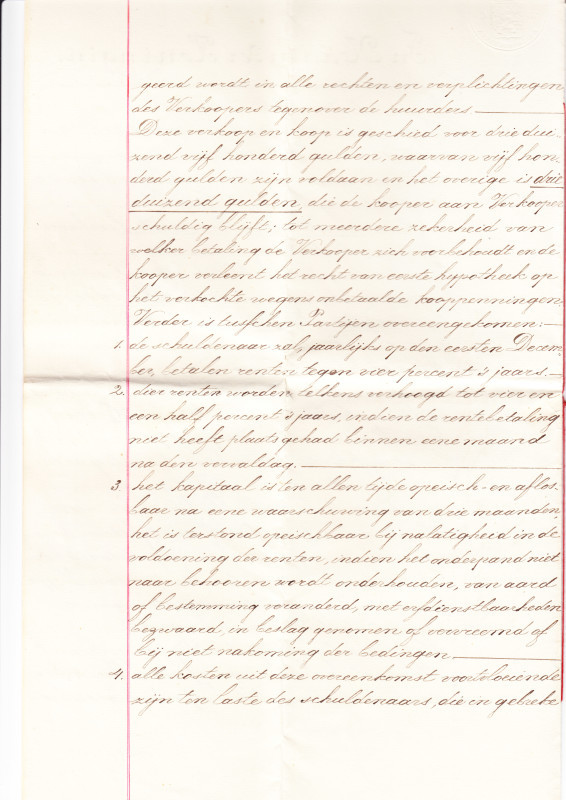 geerd wordt in alle rechten en verplichtingen
des Verkoopers tegenover de huurders
Deze verkoop en koop is geschied voor drie dui-
zend vijf honderd gulden, waarvan vijf hon-
derd gulden zijn voldaan en het overige is drie
duizend gulden, die de kooper aan Verkooper
schuldig blijft; tot meerdere zekerheid van
welker betaling de Verkooper zich voorbehoudt en de
kooper verleent het recht van eerste hypotheek op
het verkochte wegens onbetaalde kooppenningen
Verder is tusschen Partijen overeengekomen:
1. de schuldenaar zal jaarlijks op den eersten Decem-
ber, betalen renten tegen vier percent 's jaars.
2. dier renten worden telkens verhoogd tot vier en
een half percent 's jaars, indien de rentebetaling
niet heeft plaats gehad binnen eene maand
na den vervaldag.
3. het kapitaal is ten allen tijde opeisch- en aflos-
baar na eene waarschuwing van drie maanden;
het is terstond opeischbaar bij nalatigheid in de
voldoening der renten, indien het onderpand niet
naar behooren wordt onderhouden, van aard
of bestemming veranderd, met erfdienstbaarheden
bezwaard, in beslag genomen of vervreemd of
bij niet nakoming der bedingen
4. alle kosten uit deze overeenkomst voortvloeiende
zijn ten laste des schuldenaars, die in gebreke